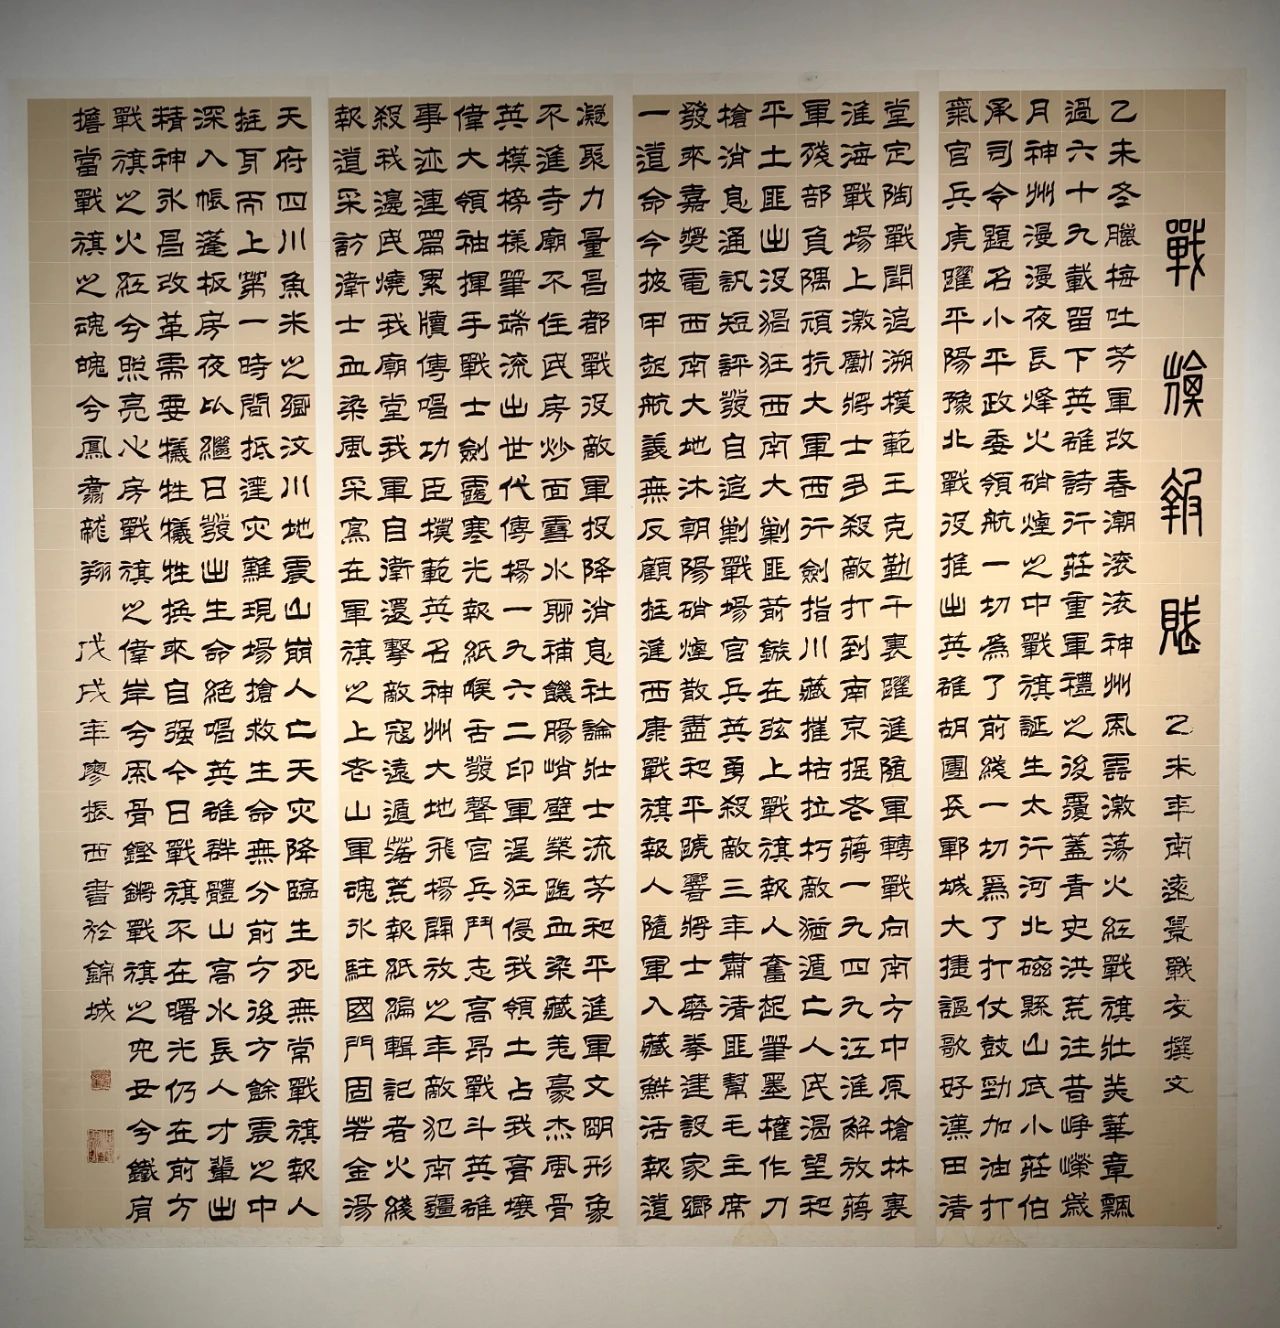 戰旗報賦 乙未年甯遠景戰友撰文
乙未冬臘梅吐芳軍改春潮滾滾神州風雲激蕩火紅戰旗壯美華章飄
過六十九載留下英雄詩行莊重軍禮之後覆蓋青史洪荒注昔崢嶸歲
月神州漫漫夜長烽火硝煙之中戰旗誕生太行河北磁縣山底小莊伯
承司令題名小平政委領航一切為了前綫一切爲了打仗鼓勁加油打
氣官兵虎躍平陽豫北戰役推出英雄胡團長鄆城大捷謳歌好漢田清
堂定陶戰鬥追溯模範王克勤千裏躍進隨軍轉戰向南方中原槍林裏
淮海戰場上激勵將士多殺敵打到南京捉老蔣一九四九江淮解放蔣
軍殘部負隅頑抗大軍西行劍指川藏摧枯拉朽敵酋遁亡人民渴望和
平土匪出沒猖狂西南大剿匪前鏃在弦上戰旗報人奮起筆墨權作刀
槍消息通訊短評發自追剿戰場官兵英勇殺敵三年肅清匪幫毛主席
發來嘉獎電西南大地沐朝陽硝煙散盡和平號響將士磨拳建設家鄉
一道命令披甲起航義無反顧挺進西康戰旗報人隨軍入藏鮮活報道
凝聚力量昌都戰役敵軍投降消息社論壯士流芳和平進軍文明形象
不進寺廟不住民房炒面雪水聊補饑腸峭壁築跑血染藏羌豪杰風骨
英模榜樣筆端流出世代傳揚一九六二印軍逞狂侵我領土占我膏壤
偉大領袖揮手戰士劍露寒光報紙喉舌發聲官兵鬥志高昂戰斗英雄
事迹連篇累牘傳唱功臣模範英名神州大地飛揚開放之年敵犯南疆
殺我邊民燒我廟堂我軍自衛還擊敵寇遠遁蠻荒報紙編輯記者火綫
報道采訪衛士血染風采寫在軍旗之上老山軍魂永駐國門固若金湯
天府四川魚米之疆汶川地震山崩人亡天災降臨生死無常戰旗報人
挺身而上第一時間抵達災難現場搶救生命無分前方後方餘震之中
深入帳蓬板房夜以繼日發出生命絕唱英雄群體山高水長人才輩出
精神永昌改革需要犧牲犧牲換來自强今日戰旗不在曙光仍在前方
戰旗之火紅兮照亮心房戰旗之偉岸兮風骨鏗鏘戰旗之兮鐵肩
擔當戰旗之魂魄兮鳳翥龍翔 戊戌年廖振西書於錦城